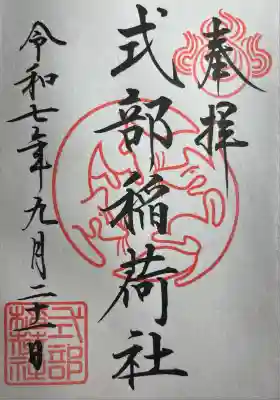 奉拝
式部稲荷社
令和七年九月二十一日
式部
稲荷